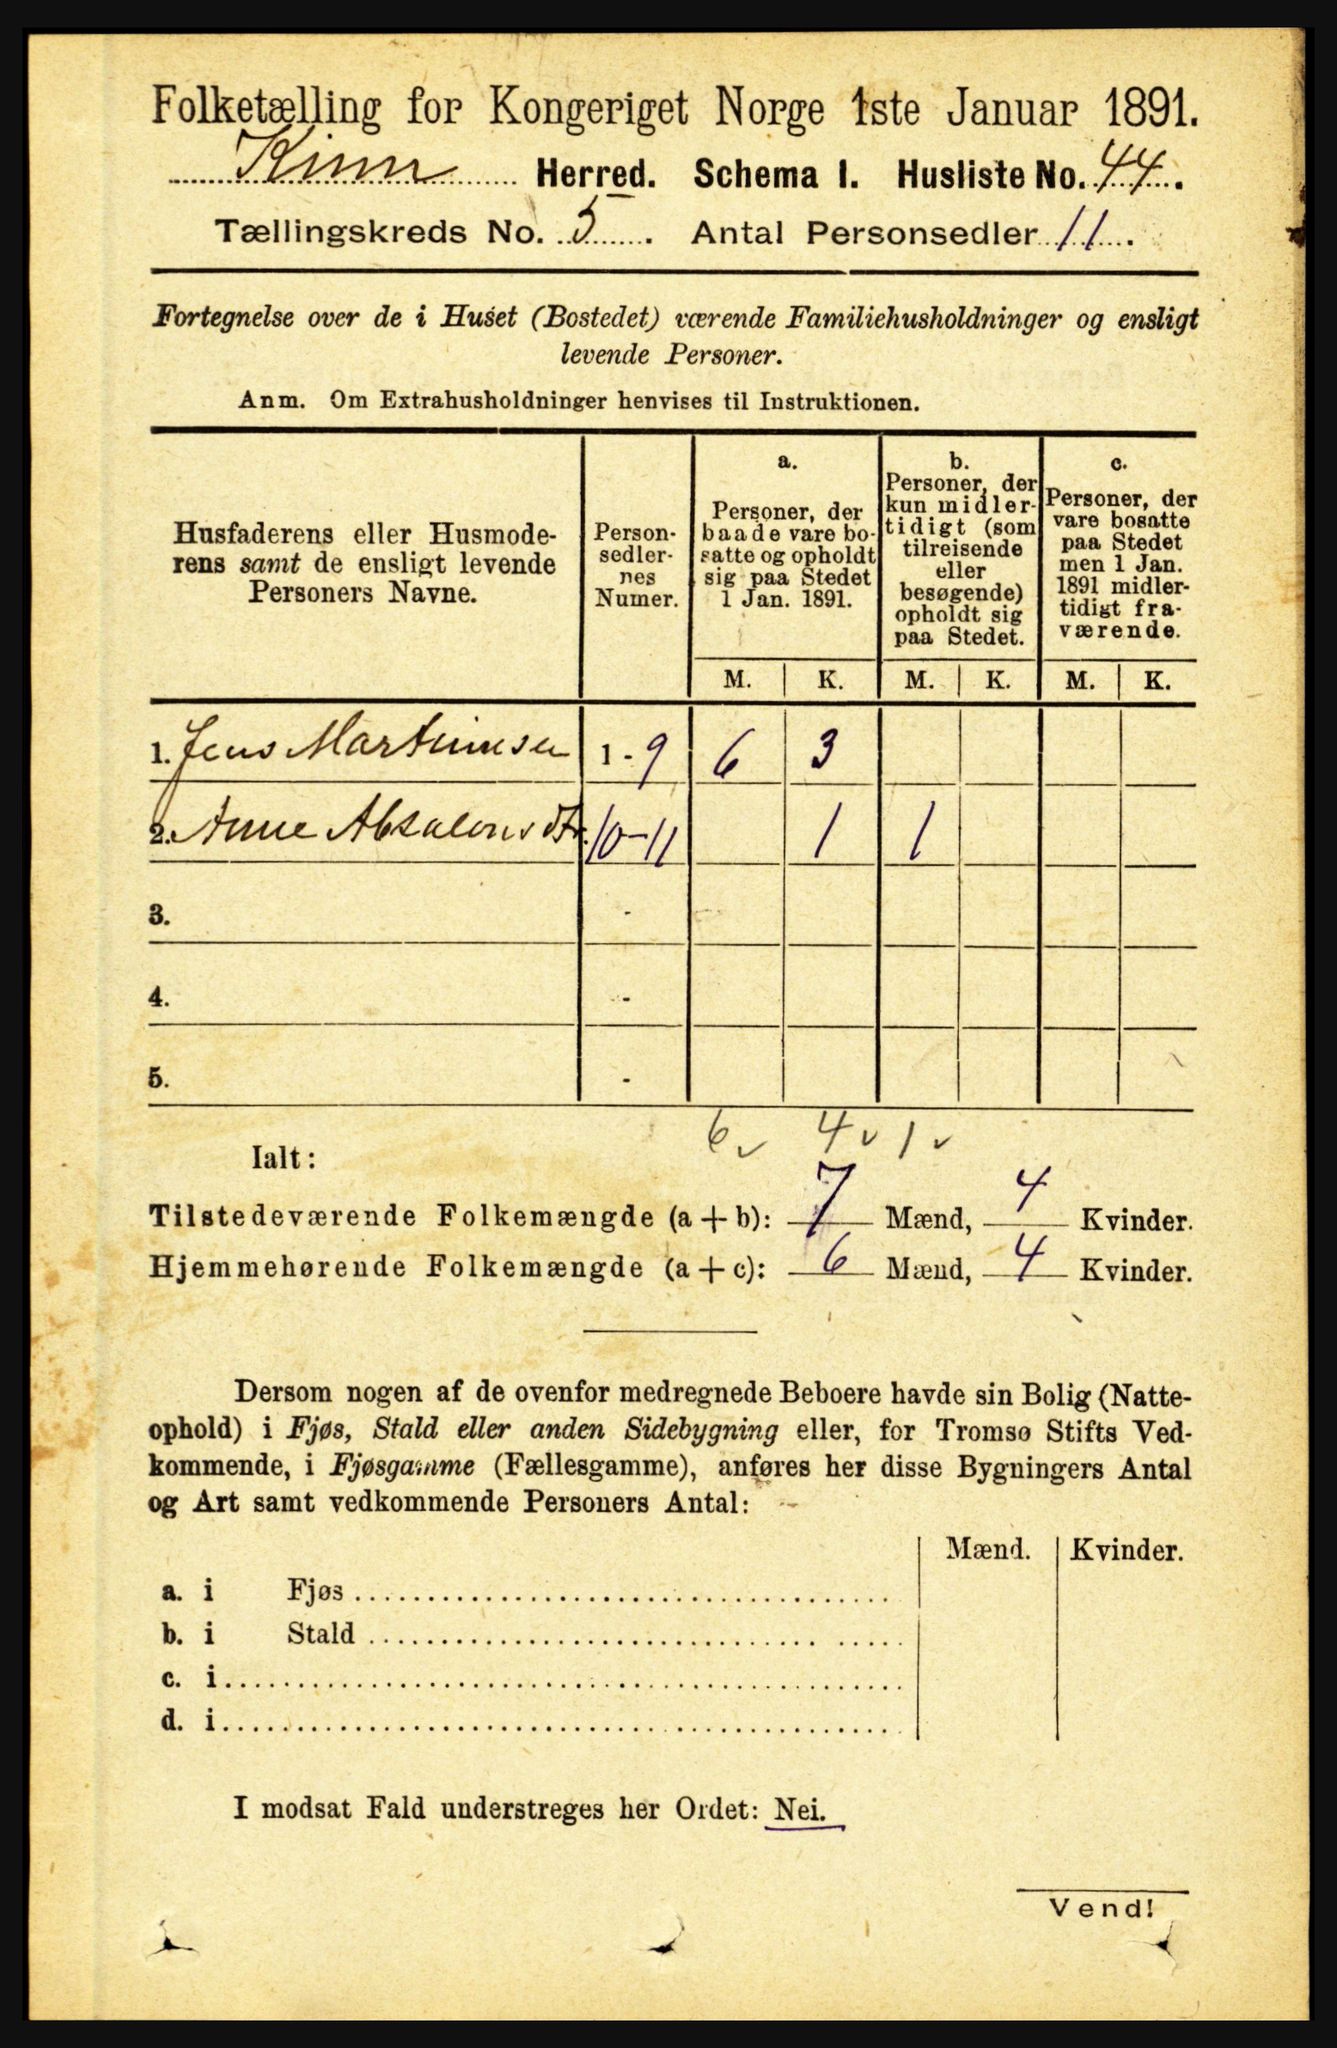 Folketælling for Kongeriget Norge 1ste Januar 1891.
Kinn Herred. Schema I. Husliste No. 44.
Tællingskreds No. 5. Antal Personsedler 11.
Fortegnelse over de i Huset (Bostedet) værende Familiehusholdninger og ensligt
levende Personer.
Anm. Om Extrahusholdninger henvises til Instruktionen.
Husfaderens eller Husmode-
rens samt de ensligt levende
Personers Navne.
Person-
sedler-
nes
Numer.
a.
Personer, der
baade vare bo-
satte og opholdt
sig paa Stedet
1 Jan. 1891.
b.
Personer, der
kun midler-
tidigt (som
tilreisende
eller
besøgende)
opholdt sig
paa Stedet.
c.
Personer, der
vare bosatte
paa Stedet
men 1 Jan.
1891 midler-
tidigt fra-
værende.
M. K. M. K. M. K.
1. Jens Martinusen 1-9 6 3
2. Anne Absalonsdtr. 10-11 1 1
3. -
4. -
5. -
6 4 1
Ialt:
Tilstedeværende Folkemængde (a+b): 7 Mænd, 4 Kvinder.
Hjemmehørende Folkemængde (a+c): 6 Mænd, 4 Kvinder.
Dersom nogen af de ovenfor medregnede Beboere havde sin Bolig (Natte-
ophold) i Fjøs, Stald eller anden Sidebygning eller, for Tromsø Stifts Ved-
kommende, i Fjøsgamme (Fællesgamme), anføres her disse Bygningers Antal
og Art samt vedkommende Personers Antal: -
Mænd. Kvinder.
a. i Fjøs
b. i Stald
c. i
d. i
I modsat Fald understreges her Ordet: Nei.
Vend!